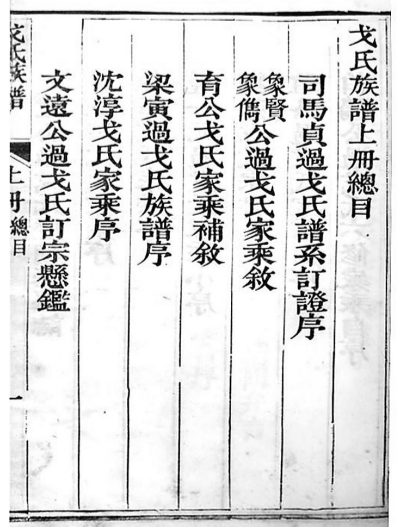 戈氏族譜上冊總目
司馬貞過戈氏譜系訂證序
象賢
象儁公過戈氏家乘敘
育公戈氏家乘補敘
梁寅過戈氏族譜序
沈淳戈氏家乘序
文遠公過戈氏訂宗懸鑑
戈氏族譜
上冊總目
一